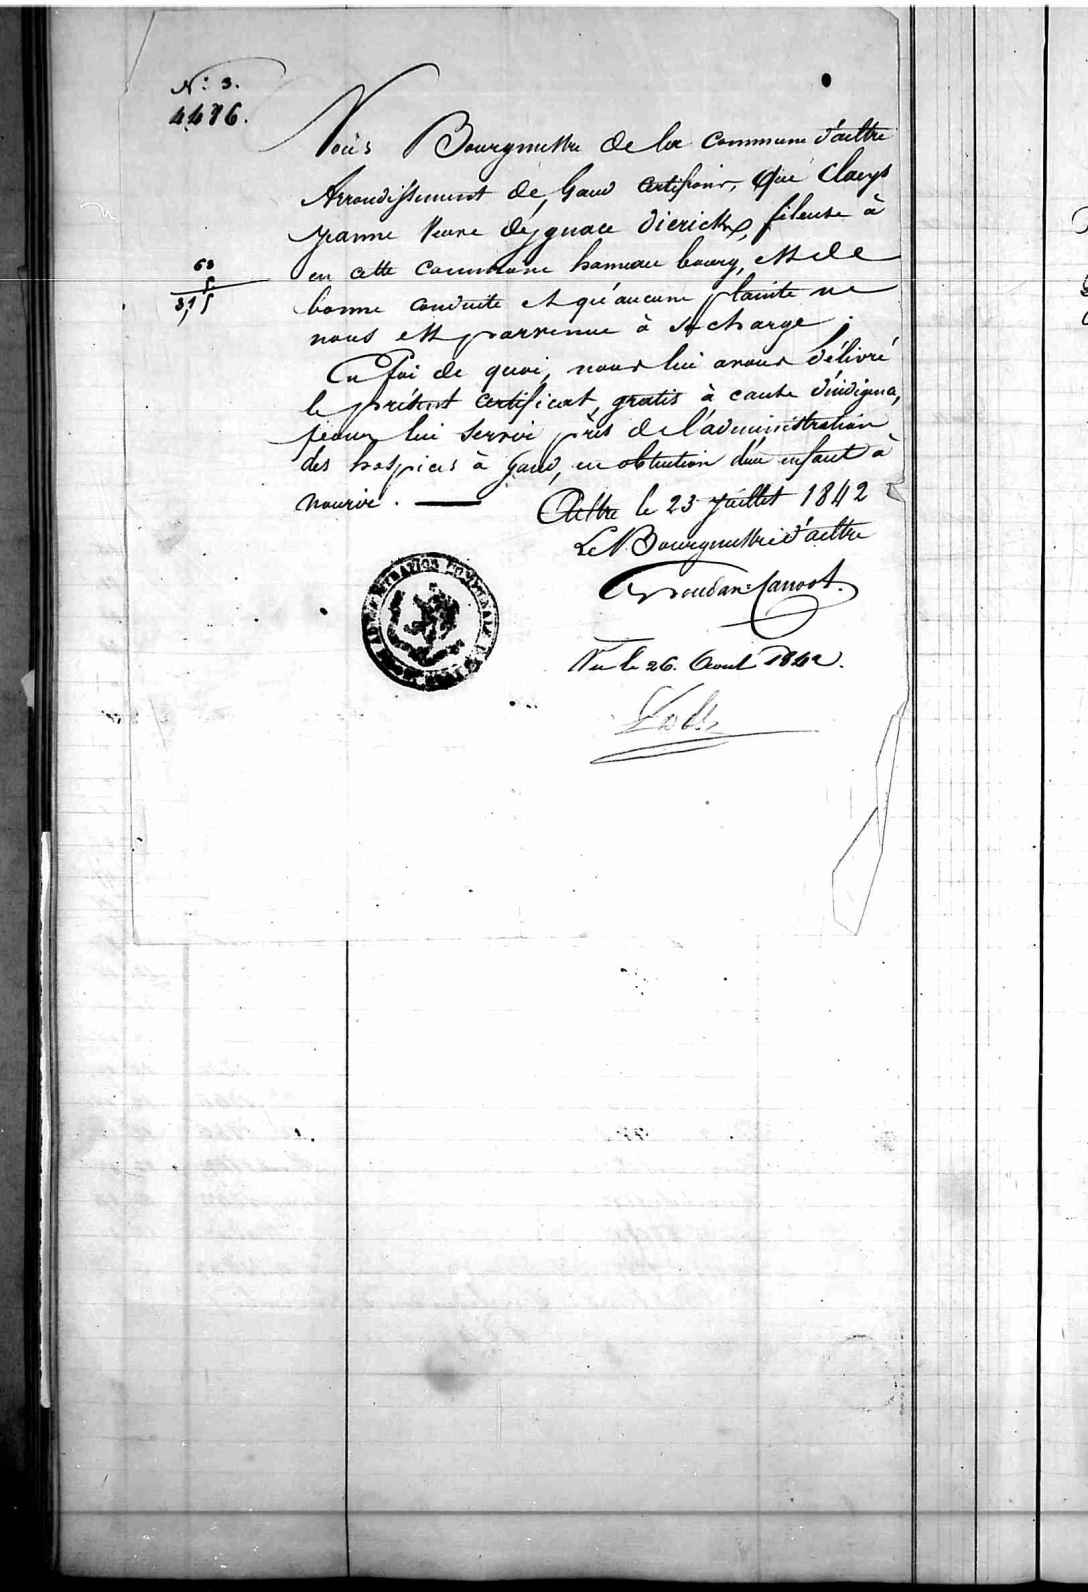 N.º 3.
4486.
Nous Bourgmestre de la commune d'aeltre
Arrondissement de Gand certifions, que Claeys
Jeanne Veuve de Ignace Dierickx, fileuse à
en cette commune hameau bourg, est de
bonne conduite et qu'aucune plainte ne
nous est parvenue à sa charge.
En foi de quoi, nous lui avons délivré
le présent certificat, gratis à cause d'indigence,
pour lui servir près de l'administration
des hospices à Gand, en obtention d'un enfant à
nourir.
63
5
315
Aeltre le 23 Juillet 1842
Le Bourgmestre d'aeltre
Vu le 26. Aout 1842.